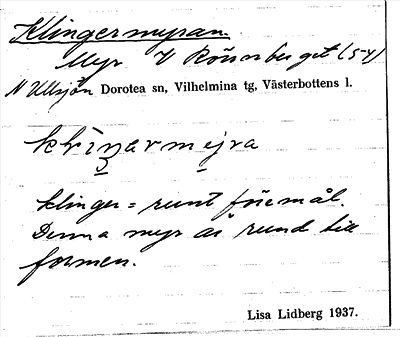 Klingermyran.
Myr V Rönnberget (5-4)
N Ullsjön Dorotea sn, Vilhelmina tg, Västerbottens l.
klinger = runt föremål.
Denna myr är rund till
formen.
Lisa Lidberg 1937.